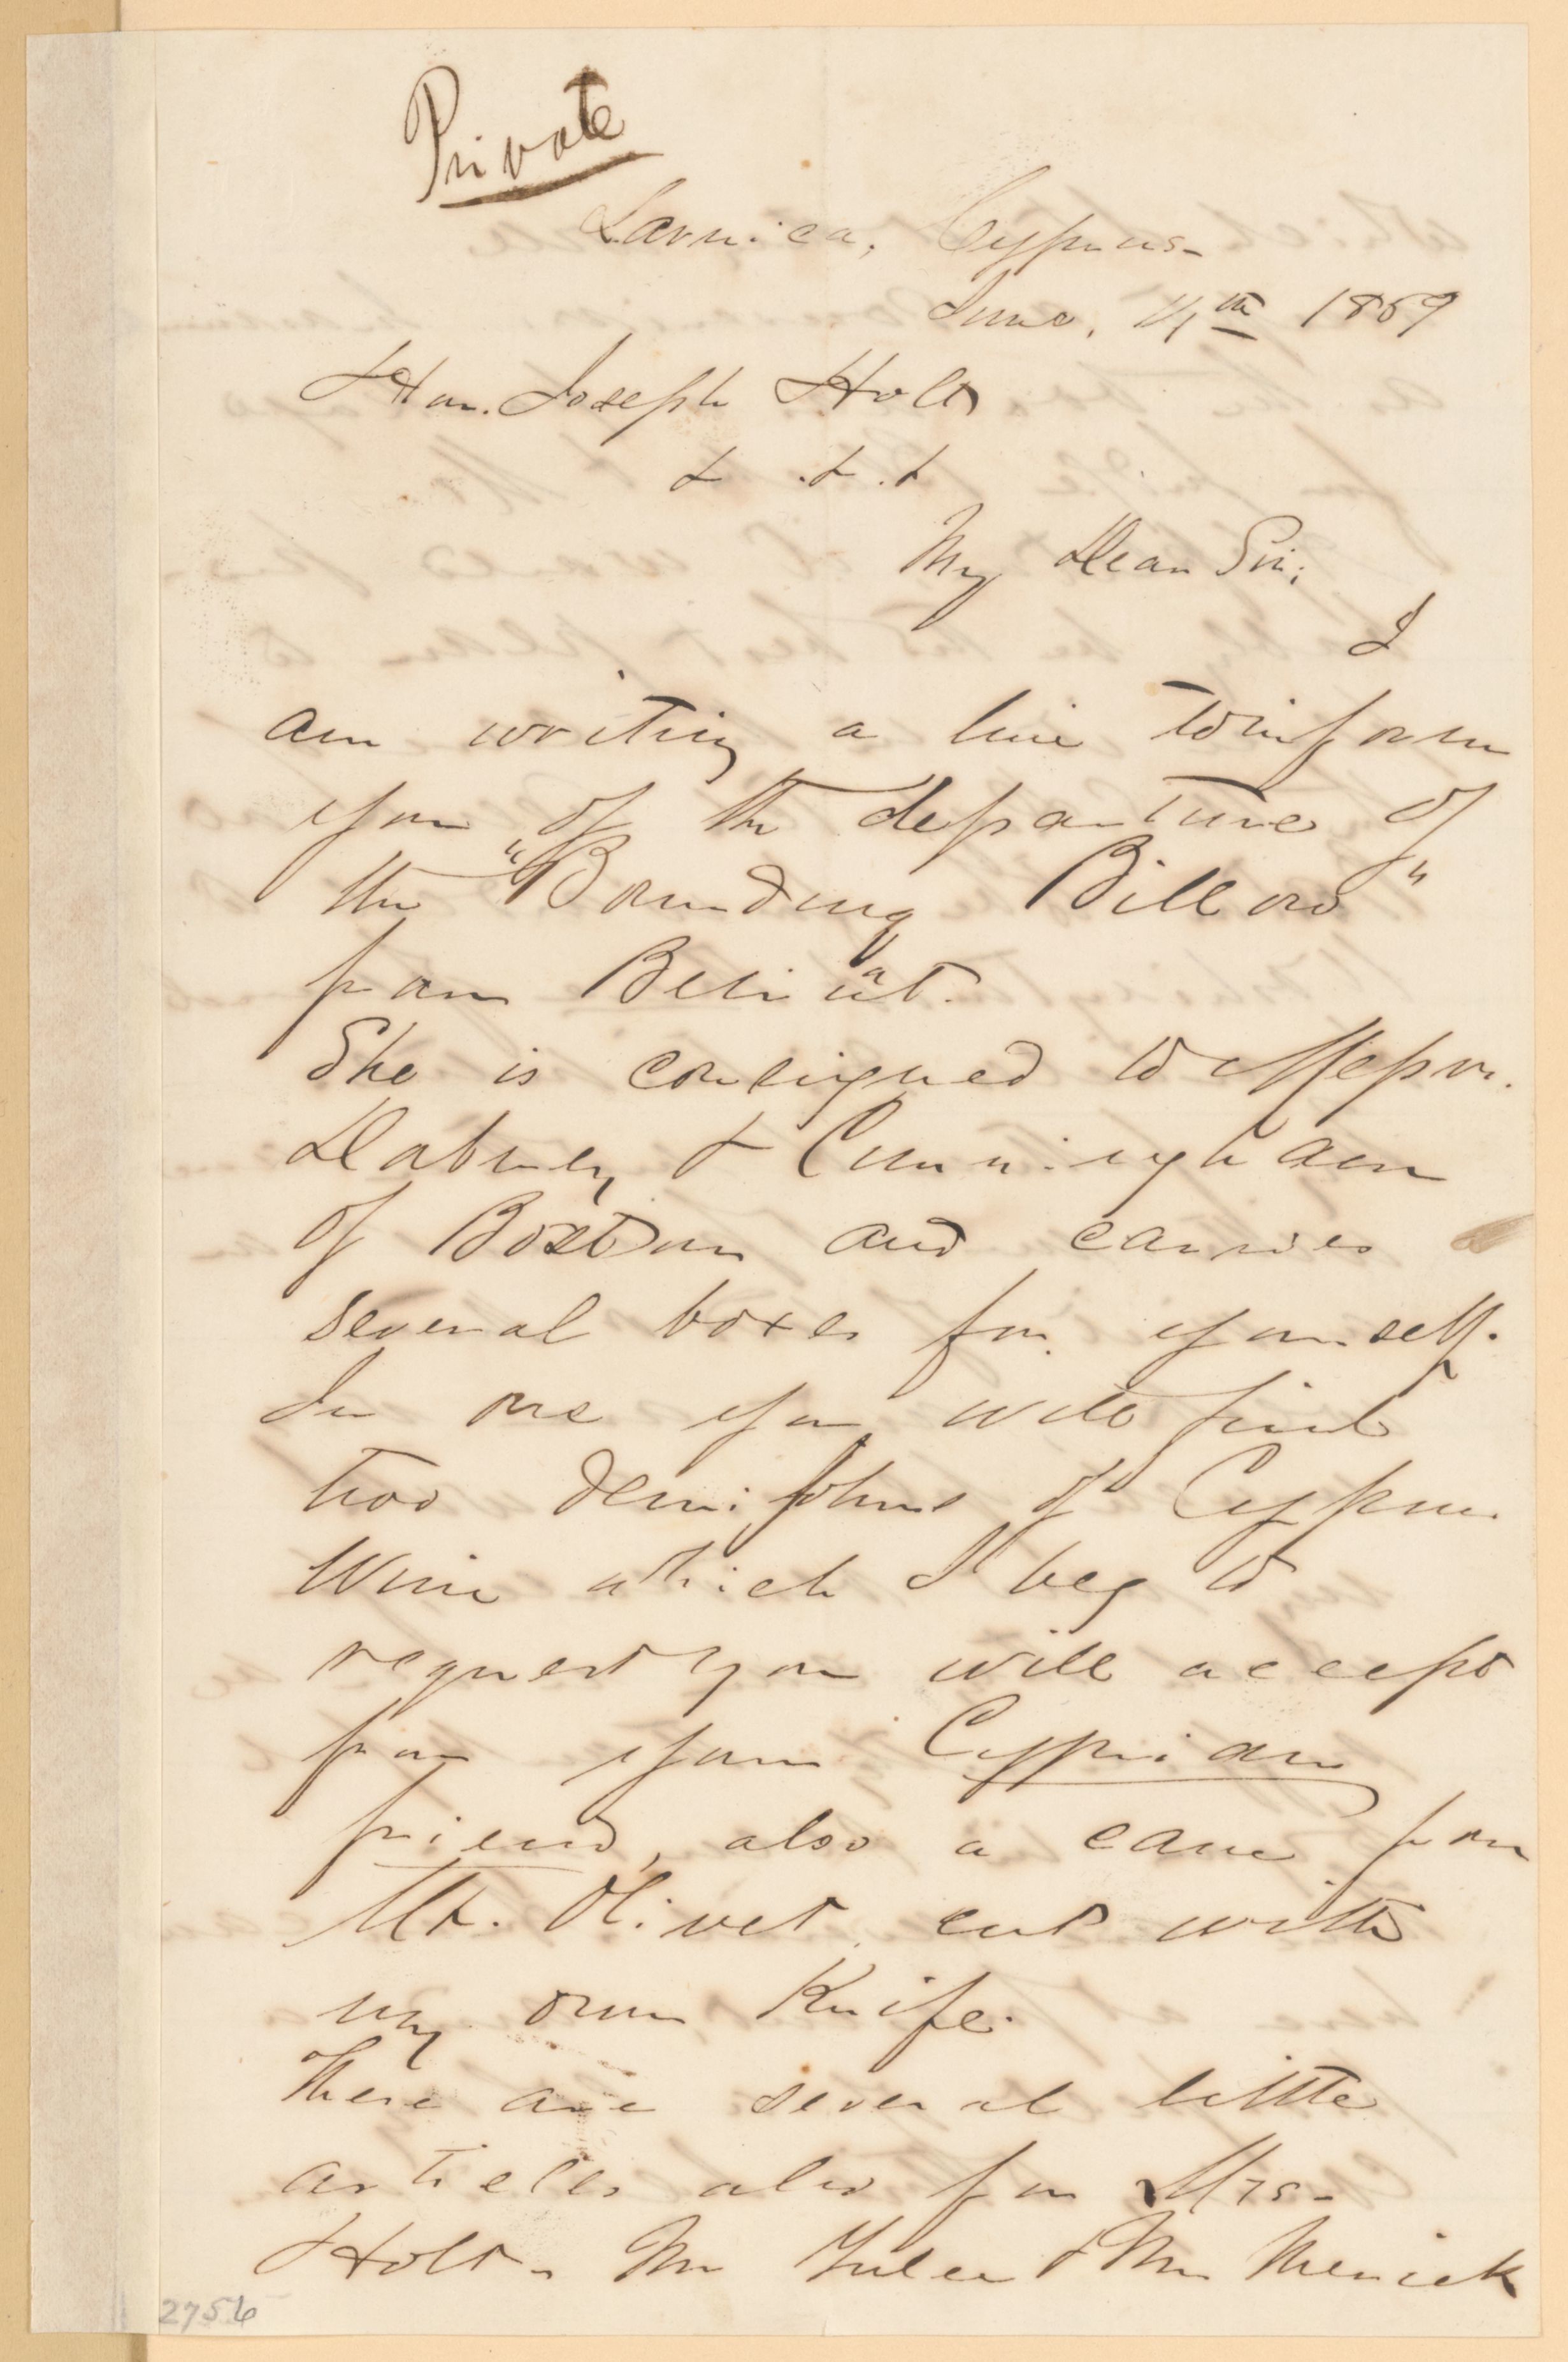 Private
Larnica, Cyprus-
June, 14th 1859
Hon. Joseph Holt
& . & . &
My Dear Sir;
I
am writing a line to inform
you of the departure of
the "Bounding Billow"
from Beirût.
She is consigned to Messrs.
Dabney & Cunningham
of Boston and carries
several boxes for yourself.
In one you will find
two demijohns of Cyprus
Wine which I beg to
request you will accept
from your Cyprian
friend, also a cane from
Mt. Olivet cut with
my own Knife.
There are several little
articles also for Mrs-
Holt- Mr & Mrs Merrick
2756